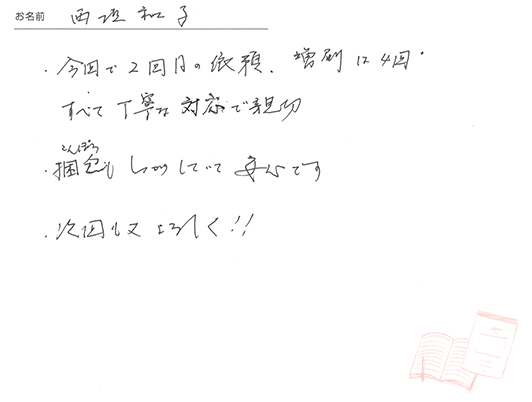 お名前 西垣 和子
・今回で2回目の依頼、増刷は4回・
すべて丁寧な対応で親切
こんぽう
・梱包もしっかりしていて安心です
・次回も又よろしく!!